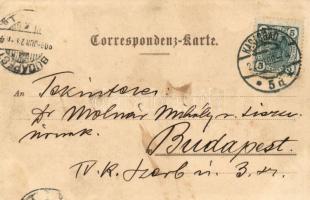 Correspondenz-Karte.
KARLSBAD
5
5
BUDAPEST
An Tekintetes
Dr Molnár Mihály
úrnak.
Budapest.
IV. K. Szerb u. 3. sz.